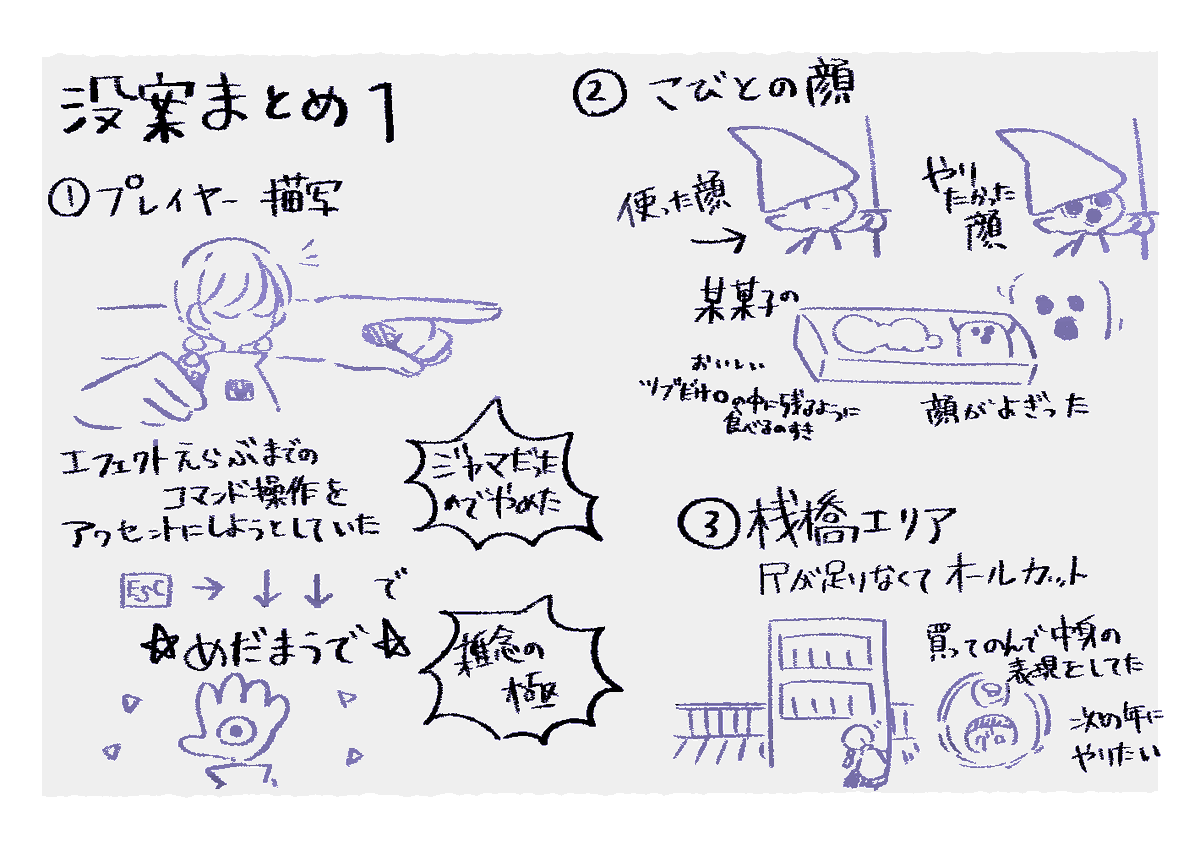 没案まとめ1
①プレイヤー描写
エフェクトえらぶまでの
コマンド操作を
アクセントにしようとしていた
ジャマだった
のでやめた
ESC→↓↓で
☆めだまうで☆
雑念の
極
②こびとの顔
使った顔
→
やり
たかった
顔
某菓子の
おいしい
ツブだけ口の中に残るように
食べるのすき
顔がよぎった
③桟橋エリア
尺が足りなくてオールカット
買ってのんで中身の
表現をしてた
グロ
次の年に
やりたい